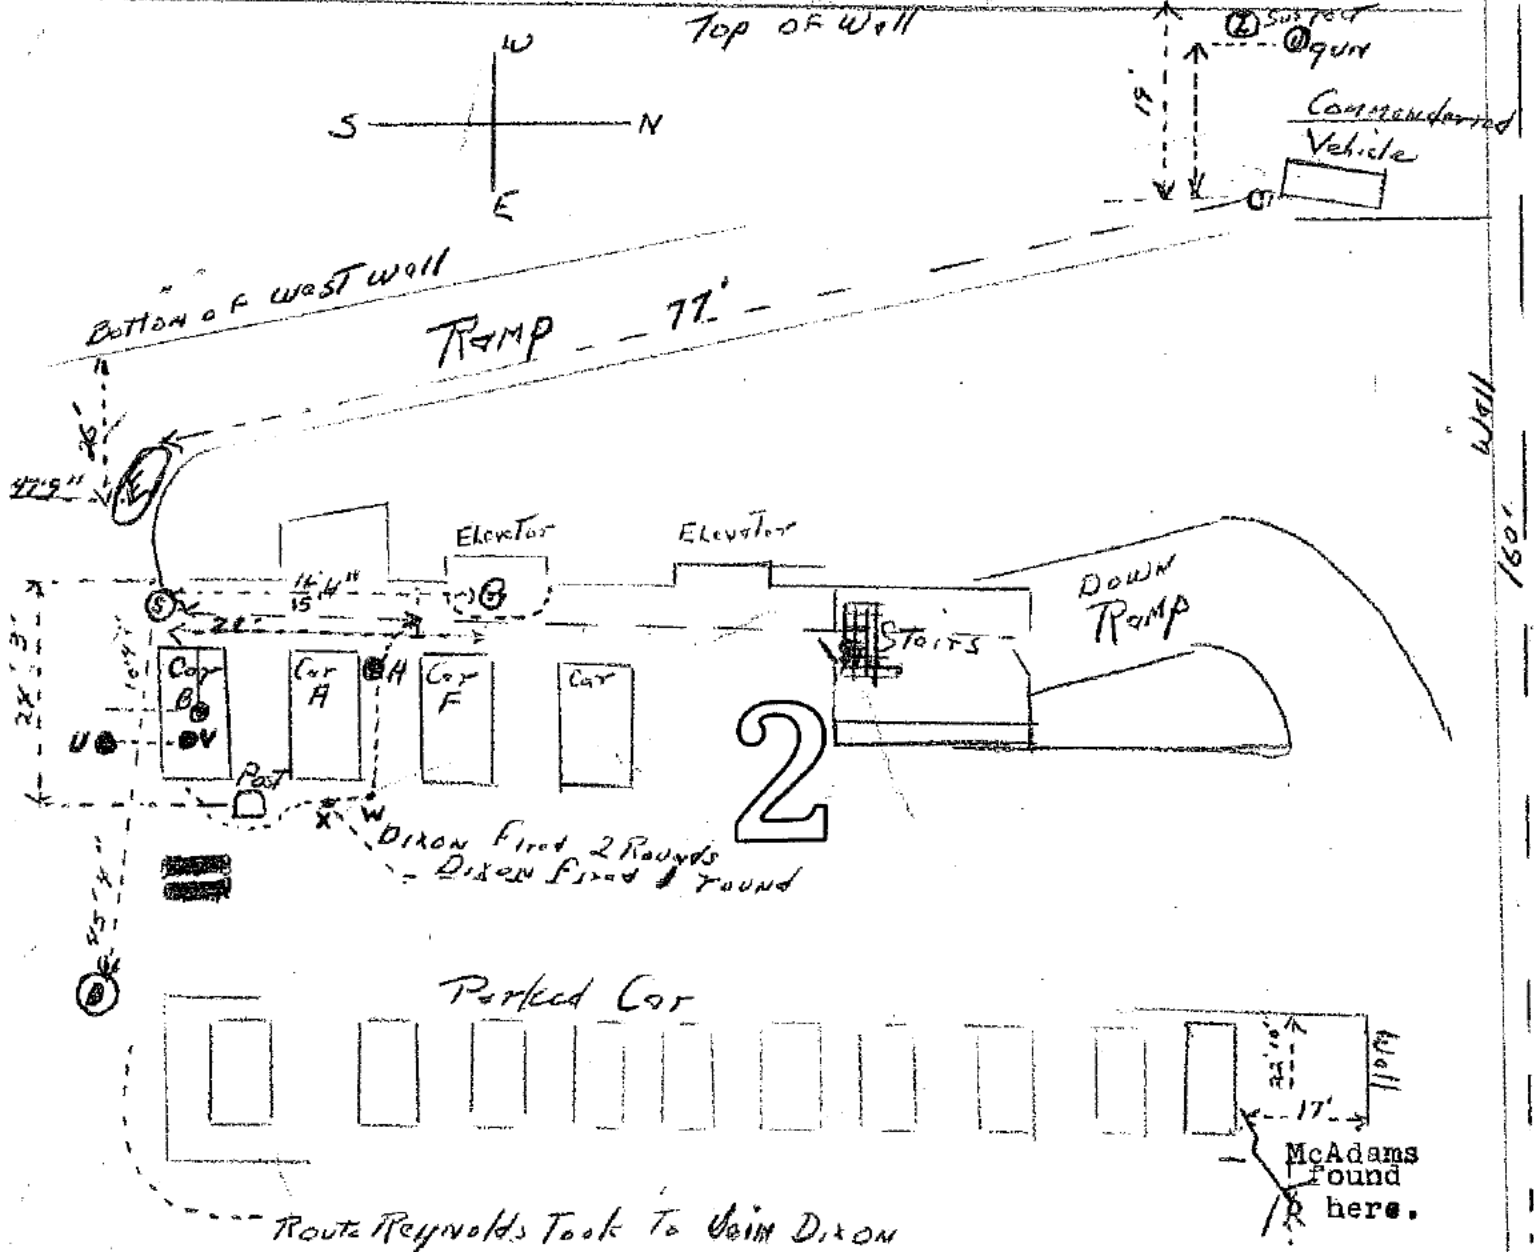 Top of Wall
Z Suspect
gun
19'
Commandeered
Vehicle
W
S N
E
Bottom of West Wall
Ramp 77'
Wall
160'
E
Elevator
Elevator
Down
Ramp
S
G
Stairs
Car
B
Car
A
H
Car
F
Car
U
V
Post
X
W
2
Dixon Fired 2 Rounds
Dixon fired 1 round
D
Parked Car
22'10"
Wall
17'
McAdams
found
here.
Route Reynolds Took To Join Dixon